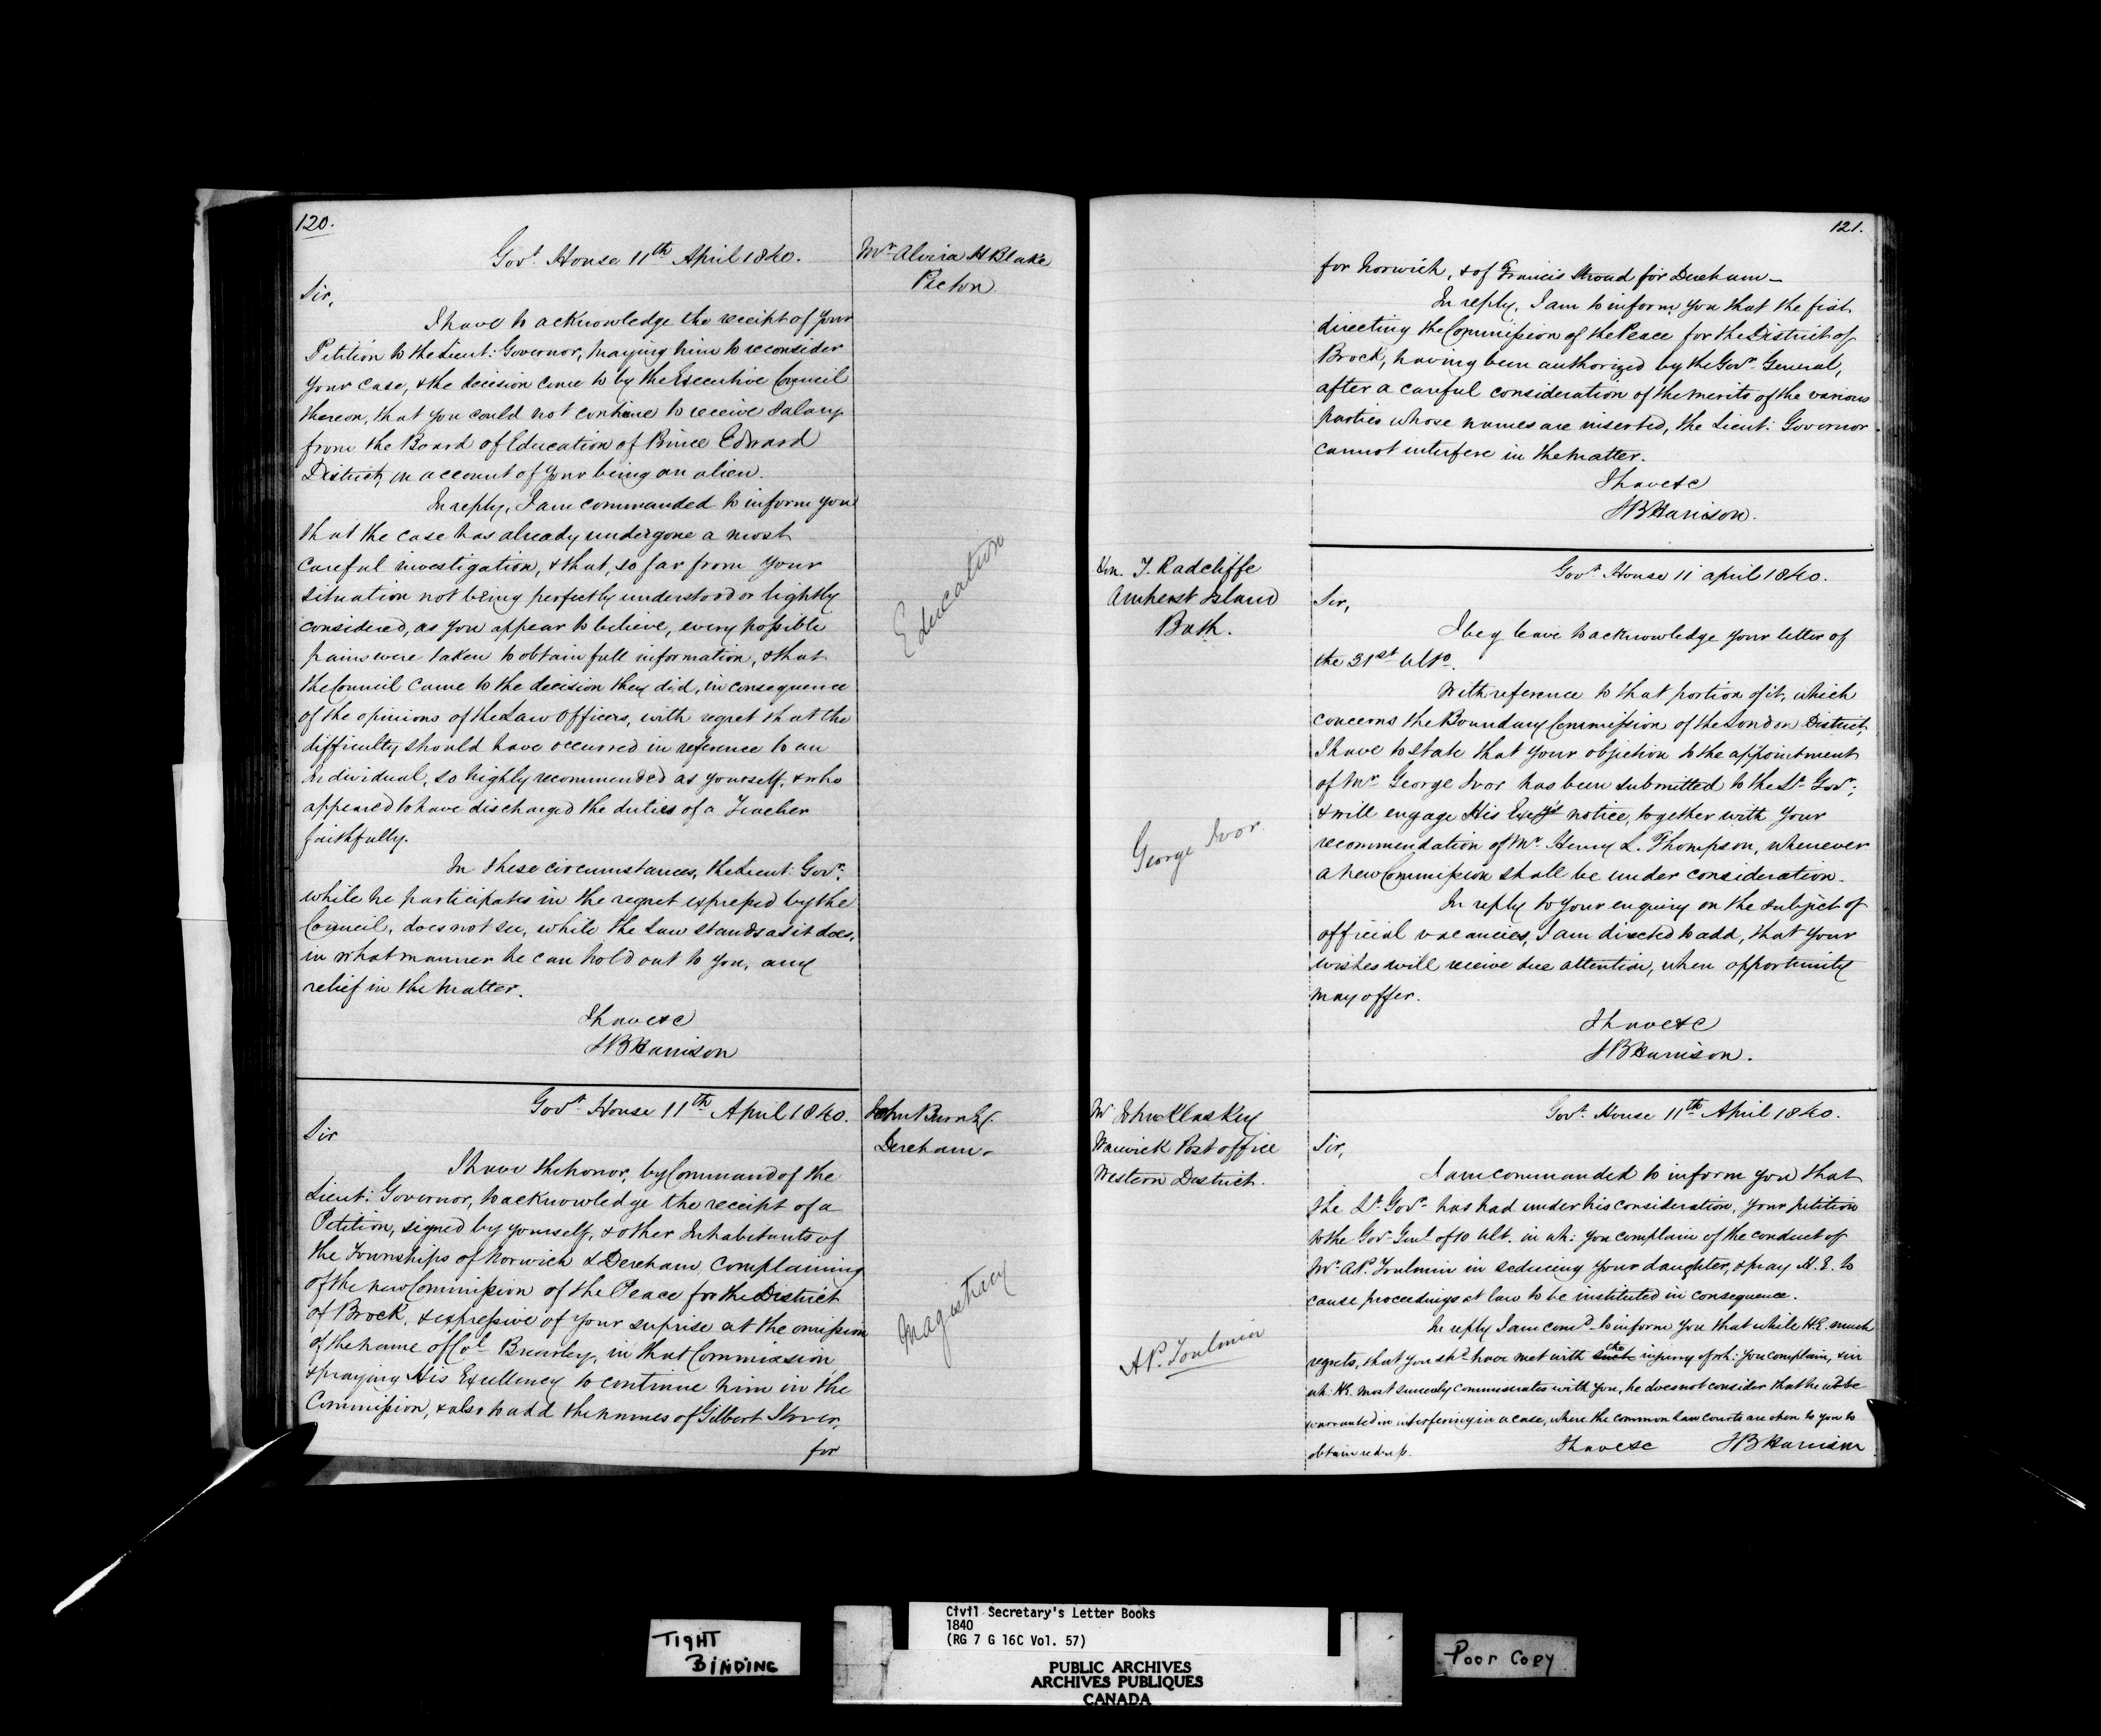 120.
Mr Alvira H Blake
Picton
Govt. House 11th April 1840.
Sir,
I have to acknowledge the receipt of your
Petition to the Lieut: Governor, praying him to reconsider
your case, & the decision come to by the Executive Council
thereon, that you could not continue to receive salary
from the Board of Education of Prince Edward
District, on account of your being an alien.
In reply, I am commanded to inform you
that the case has already undergone a most
careful investigation, & that, so far from your
situation not being perfectly understood or lightly
considered, as you appear to believe, every possible
pains were taken to obtain full information, & that
the Council came to the decision they did, in consequence
of the opinions of the Law Officers, with regret that the
difficulty should have occurred in reference to an
individual, so highly recommended as yourself, & who
appeared to have discharged the duties of a Teacher
faithfully.
In these circumstances, the Lieut: Govr.
while he participates in the regret expressed by the
Council, does not see, while the Law stands as it does,
in what manner he can hold out to you, any
relief in the matter.
I have &c
SB Harrison
Education
John Burn Esq.
Dereham
Govt House 11th April 1840.
Sir
I have the honor, by Command of the
Lieut: Governor, to acknowledge the receipt of a
Petition, signed by yourself, & other Inhabitants of
the Townships of Norwich & Dereham, complaining
of the new Commission of the Peace for the District
of Brock, & expressive of your suprise at the omission
of the name of Col. Brearley, in that Commission
& praying His Excellency to continue him in the
Commission, & also to add the names of Gilbert
for
Magistracy
121.
for Norwich, & of Francis Stroud for Dereham—
In reply, I am to inform you that the fiat
directing the Commission of the Peace for the District of
Brock, having been authorized by the Govr. General,
after a careful consideration of the merits of the various
parties whose names are inserted, the Lieut: Governor
cannot interfere in the matter.
I have &c
SB Harrison.
Hon. T. Radcliffe
Amherst Island
Bath.
Govt House 11 April 1840.
Sir,
I beg leave to acknowledge your letter of
the 31st Ulto.
With reference to that portion of it, which
concerns the Boundary Commission of the London District,
I have to state that your objection to the appointment
of Mr George Ivor has been submitted to the Lt Govr;
& will engage His Excy's notice, together with your
recommendation of Mr Henry L. Thompson, whenever
a new Commission shall be under consideration.
In reply to your enquiry on the subject of
official vacancies, I am directed to add, that your
wishes will receive due attention, when opportunity
may offer.
I have &c
SB Harrison.
George Ivor
Mr John
Warwick Post office
Western District.
Govt. House 11th April 1840.
Sir,
I am commanded to inform you that
the Lt Govr has had under his consideration, your petition
to the Govr Genl of 10 Ult. in wh: you complain of the conduct of
Mr A.P. Toulmin in seducing your daughter, & pray H.E. to
cause proceedings at law to be instituted in consequence.
In reply I am comd. to inform you that while H.E. much
regrets, that you shd have met with such the injury of wh: you complain, & in
wh: H.E. most sincerely commiserates with you, he does not consider that he wd be
warranted in interfering in a case, where the common law courts are open to you to
obtain redress. I have &c SB Harrison
A.P. Toulmin
TIGHT
BINDING
Civil Secretary's Letter Books
1840
(RG 7 G 16C Vol. 57)
PUBLIC ARCHIVES
ARCHIVES PUBLIQUES
CANADA
Poor Copy